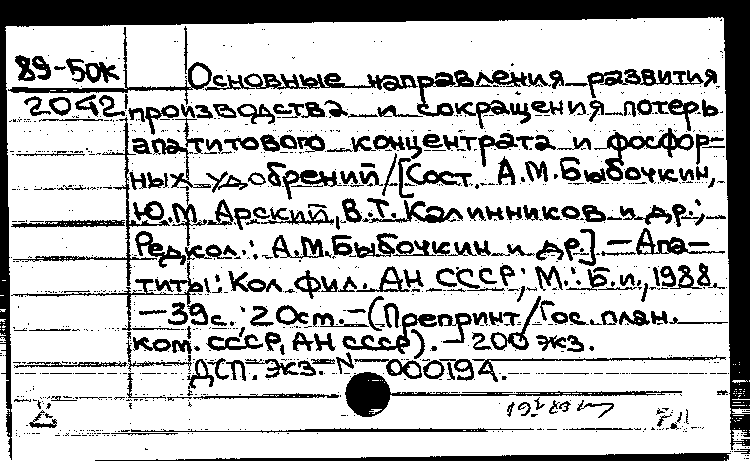 89-50к
2042
Основные направления развития
производства и сокращения потерь
апатитового концентрата и фосфор-
ных удобрений/[Сост. А.М.Быбочкин,
Ю.М. Арский, В.Т. Калинников и др.;
Редкол.: А.М.Быбочкин и др.]. — Апа-
титы: Кол. фил. АН СССР; М.: Б.и., 1988.
— 39с.; 20см. — (Препринт/Гос. план.
ком. СССР, АН СССР). — 200 экз.
ДСП. Экз. N 000194.